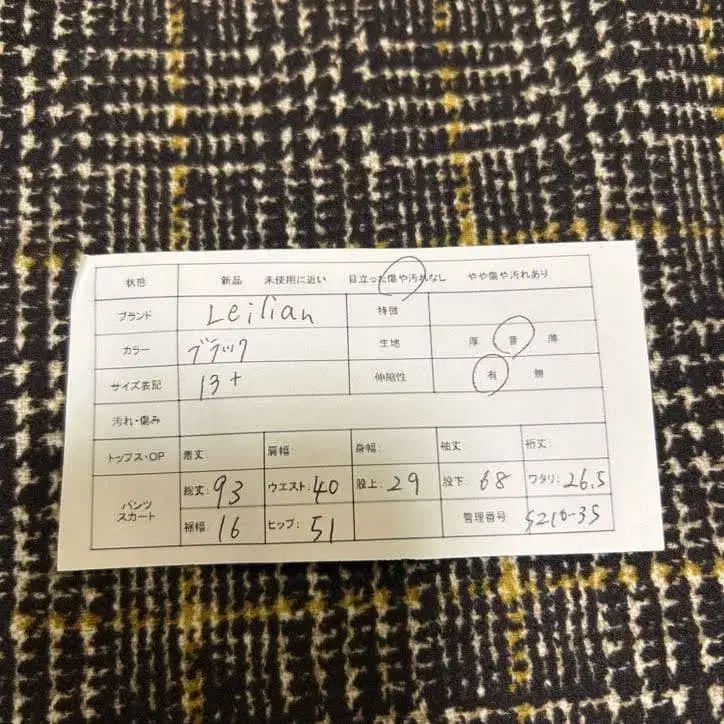 状態 新品 未使用に近い 目立った傷や汚れなし やや傷や汚れあり
ブランド Leilian 特徴
カラー ブラック 生地 厚 普 薄
サイズ表記 13+ 伸縮性 有 無
汚れ・傷み
トップス・OP 着丈 肩幅: 身幅: 袖丈 裄丈:
パンツ スカート 総丈: 93 ウエスト: 40 股上: 29 股下: 68 ワタリ: 26.5
裾幅: 16 ヒップ: 51 管理番号 S210-35